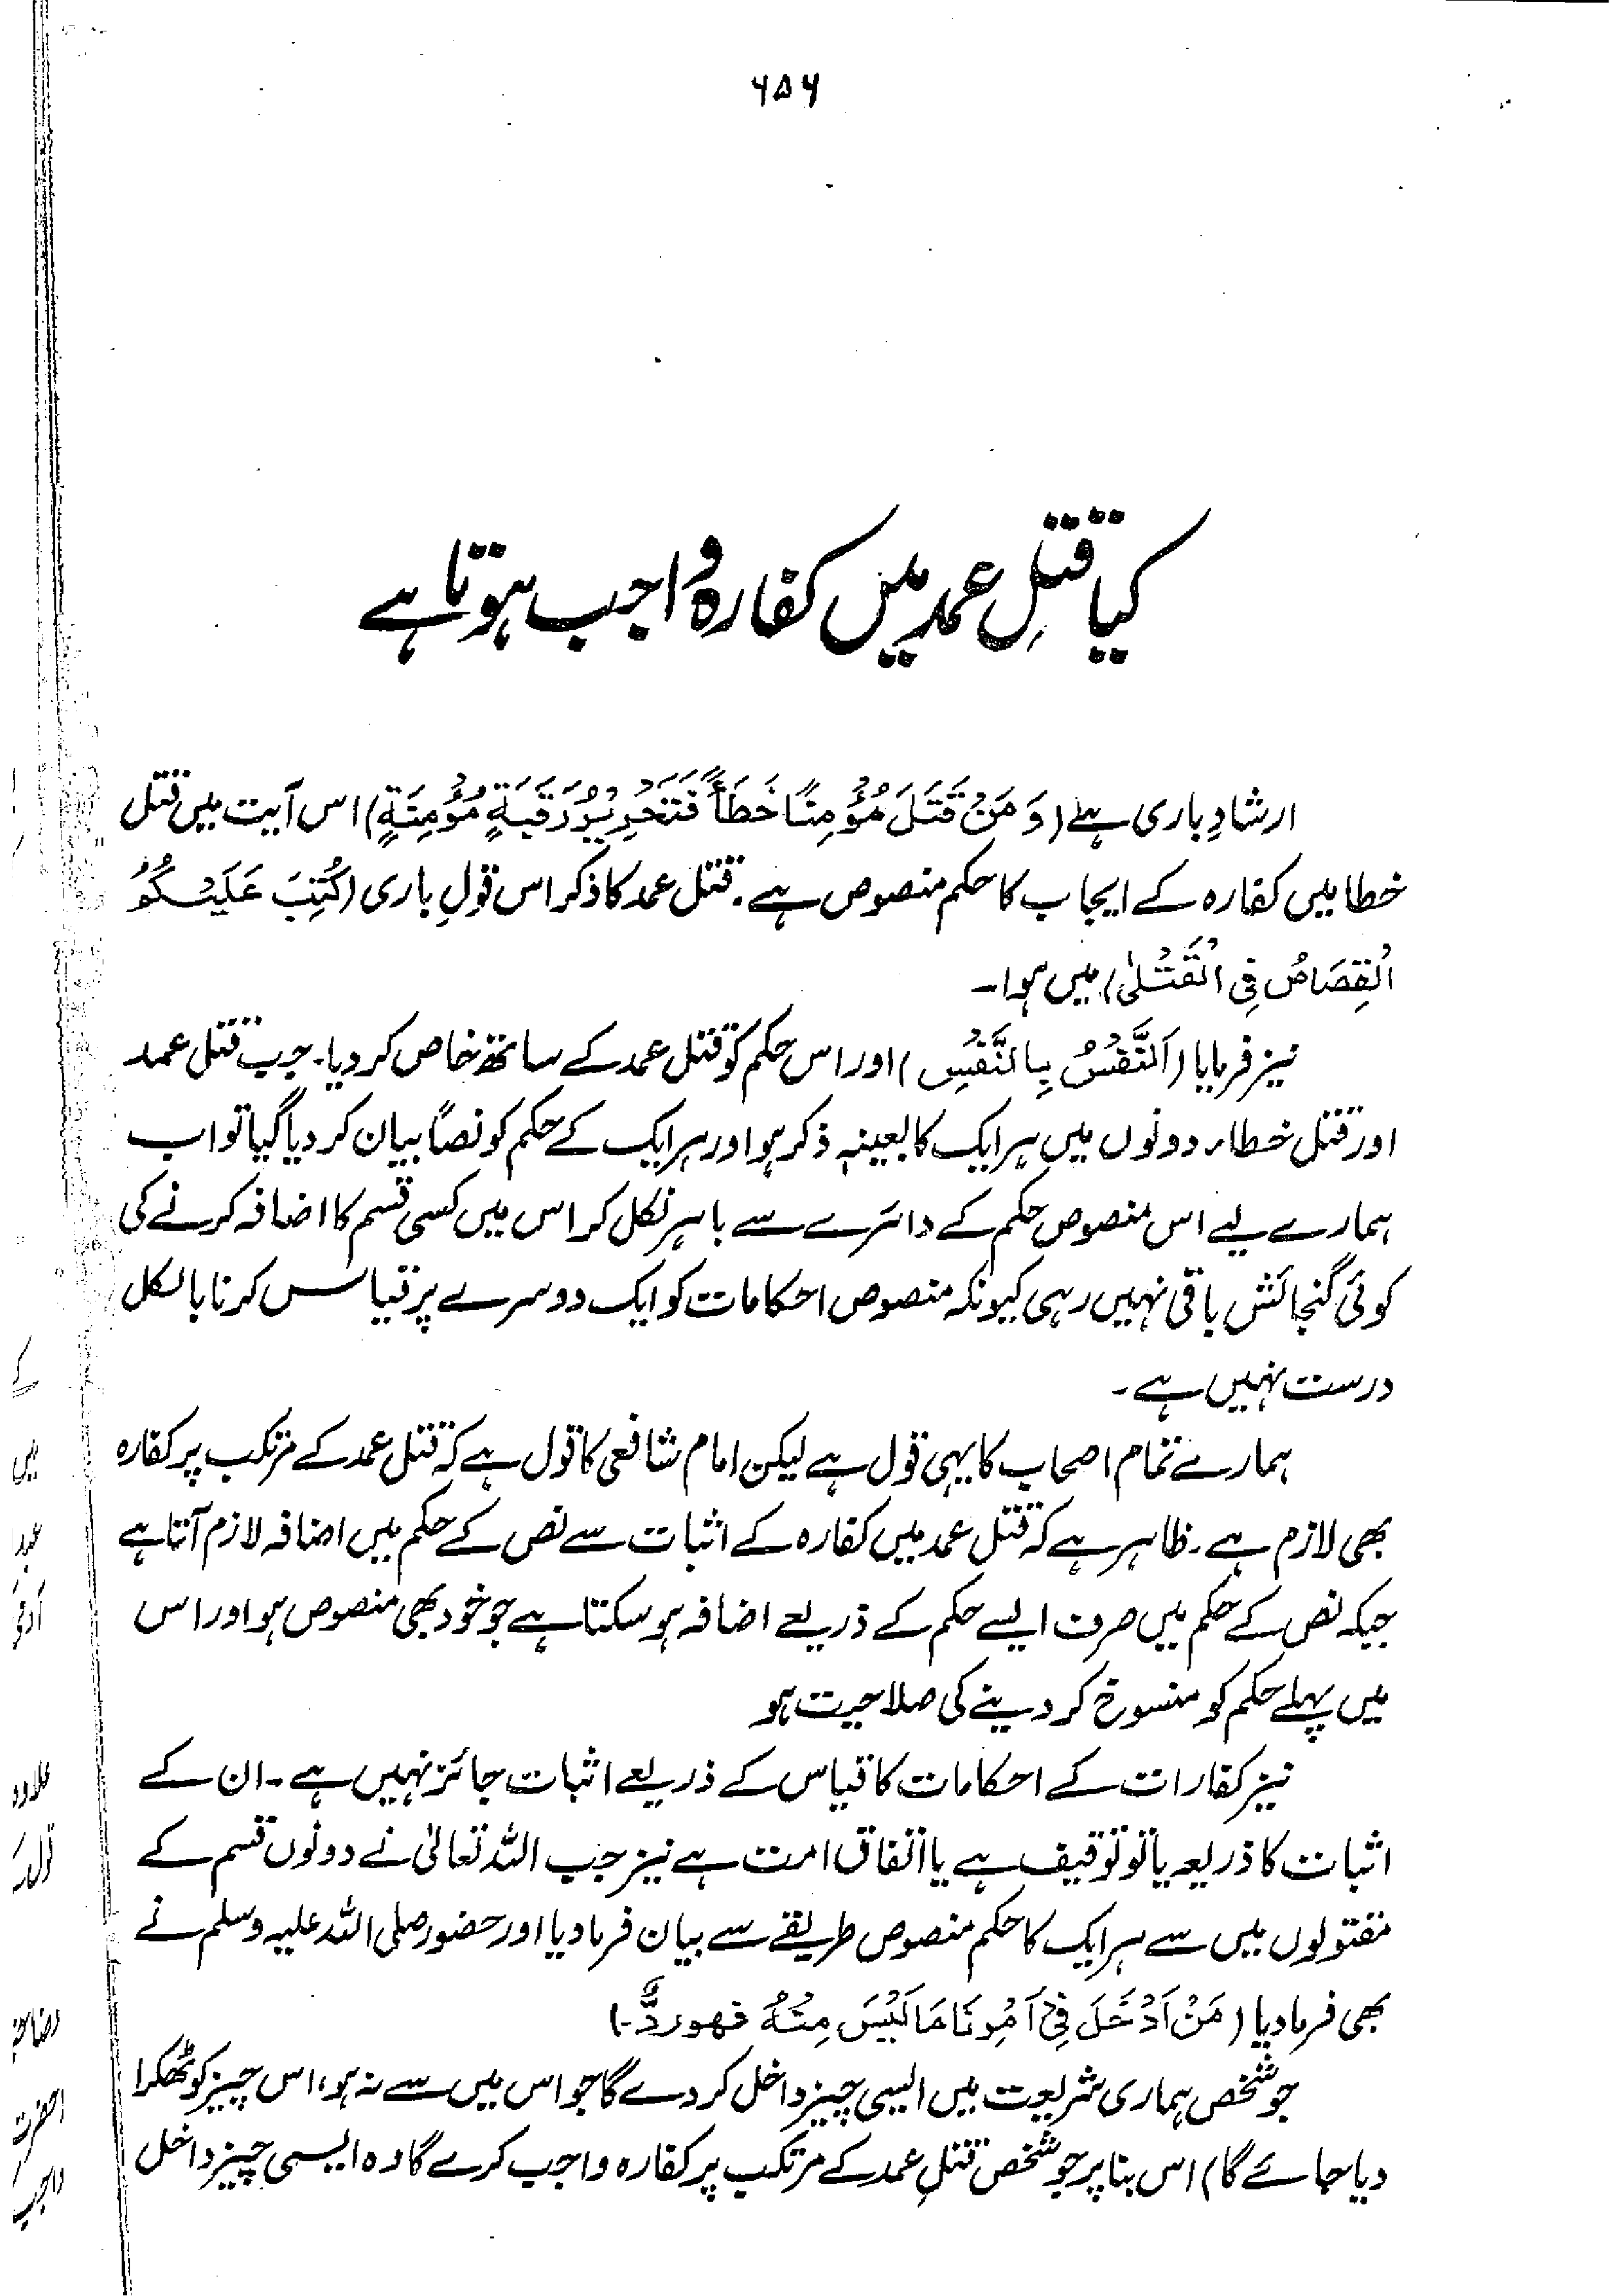 ۶۵۶
کیا قتلِ عمد میں کفارہ واجب ہوتا ہے
ارشادِ باری ہے (وَمَنْ قَتَلَ مُؤْمِنًا خَطَأً فَتَحْرِيْرُ رَقَبَةٍ مُؤْمِنَةٍ) اس آیت میں قتل
خطا میں کفارہ کے ایجاب کا حکم منصوص ہے۔ قتل عمد کا ذکر اس قولِ باری (كُتِبَ عَلَيْكُمُ
الْقِصَاصُ فِي الْقَتْلىٰ) میں ہوا۔
نیز فرمایا (اَلنَّفْسُ بِالنَّفْسِ) اور اس حکم کو قتل عمد کے ساتھ خاص کر دیا۔ جب قتل عمد
اور قتل خطاء دونوں میں ہر ایک کا بعینہٖ ذکر ہو اور ہر ایک کے حکم کو نصاً بیان کر دیا گیا تو اب
ہمارے لیے اس منصوص حکم کے دائرے سے باہر نکل کر اس میں کسی قسم کا اضافہ کرنے کی
کوئی گنجائش باقی نہیں رہی کیونکہ منصوص احکامات کو ایک دوسرے پر قیاس کرنا بالکل
درست نہیں ہے۔
ہمارے تمام اصحاب کا یہی قول ہے لیکن امام شافعی کا قول ہے کہ قتل عمد کے مرتکب پر کفارہ
بھی لازم ہے۔ ظاہر ہے کہ قتل عمد میں کفارہ کے اثبات سے نص کے حکم میں اضافہ لازم آتا ہے
جبکہ نص کے حکم میں صرف ایسے حکم کے ذریعے اضافہ ہو سکتا ہے جو خود بھی منصوص ہو اور اس
میں پہلے حکم کو منسوخ کر دینے کی صلاحیت ہو
نیز کفارات کے احکامات کا قیاس کے ذریعے اثبات جائز نہیں ہے۔ ان کے
اثبات کا ذریعہ یا تو توقیف ہے یا اتفاق امت ہے نیز جب اللہ تعالیٰ نے دونوں قسم کے
مقتولوں میں سے ہر ایک کا حکم منصوص طریقے سے بیان فرما دیا اور حضور صلی اللہ علیہ وسلم نے
بھی فرما دیا (مَنْ اَدْخَلَ فِيْ اَمْرِنَا مَا لَيْسَ مِنْهُ فهو ردٌّ۔)
جو شخص ہماری شریعت میں ایسی چیز داخل کر دے گا جو اس میں سے نہ ہو، اس چیز کو ٹھکرا
دیا جائے گا) اس بنا پر جو شخص قتلِ عمد کے مرتکب پر کفارہ واجب کرے گا وہ ایسی چیز داخل